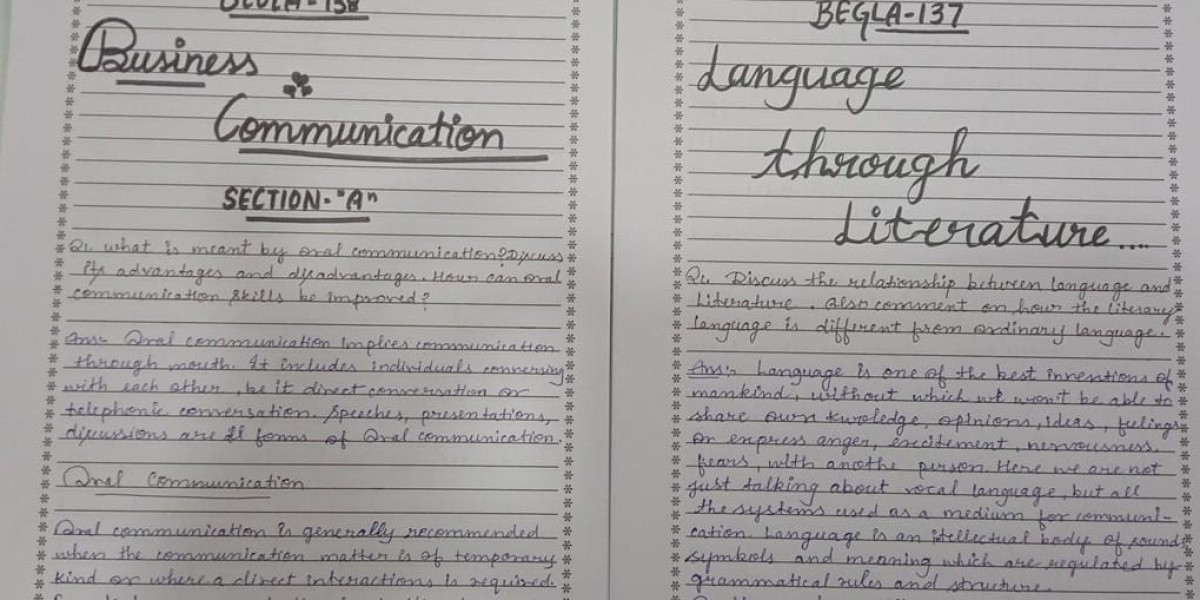 BEGLA-138
Business
Communication
SECTION-"A"
Q1. what is meant by oral communication? Discuss
its advantages and disadvantages. How can oral
communication skills be improved?
Ans:- Oral communication implies communication
through mouth. It includes individuals conversing
with each other, be it direct conversation or
telephonic conversation. Speeches, presentations,
discussions are all forms of Oral communication.
Oral Communication
Oral communication is generally recommended
when the communication matter is of temporary
kind or where a direct interactions is required.
BEGLA-137
Language
through
Literature....
Q1. Discuss the relationship between language and
literature. Also comment on how the literary
language is different from ordinary language.
Ans:- Language is one of the best inventions of
mankind, without which we won't be able to
share own kwoledge, opinions, ideas, feelings
or express anger, excitement, nervousness
fears, with anothe person. Here we are not
just talking about vocal language, but all
the systems used as a medium for communi-
cation. Language is an itellectual body of sound
symbols and meaning which are regulated by
grammatical rules and structure.